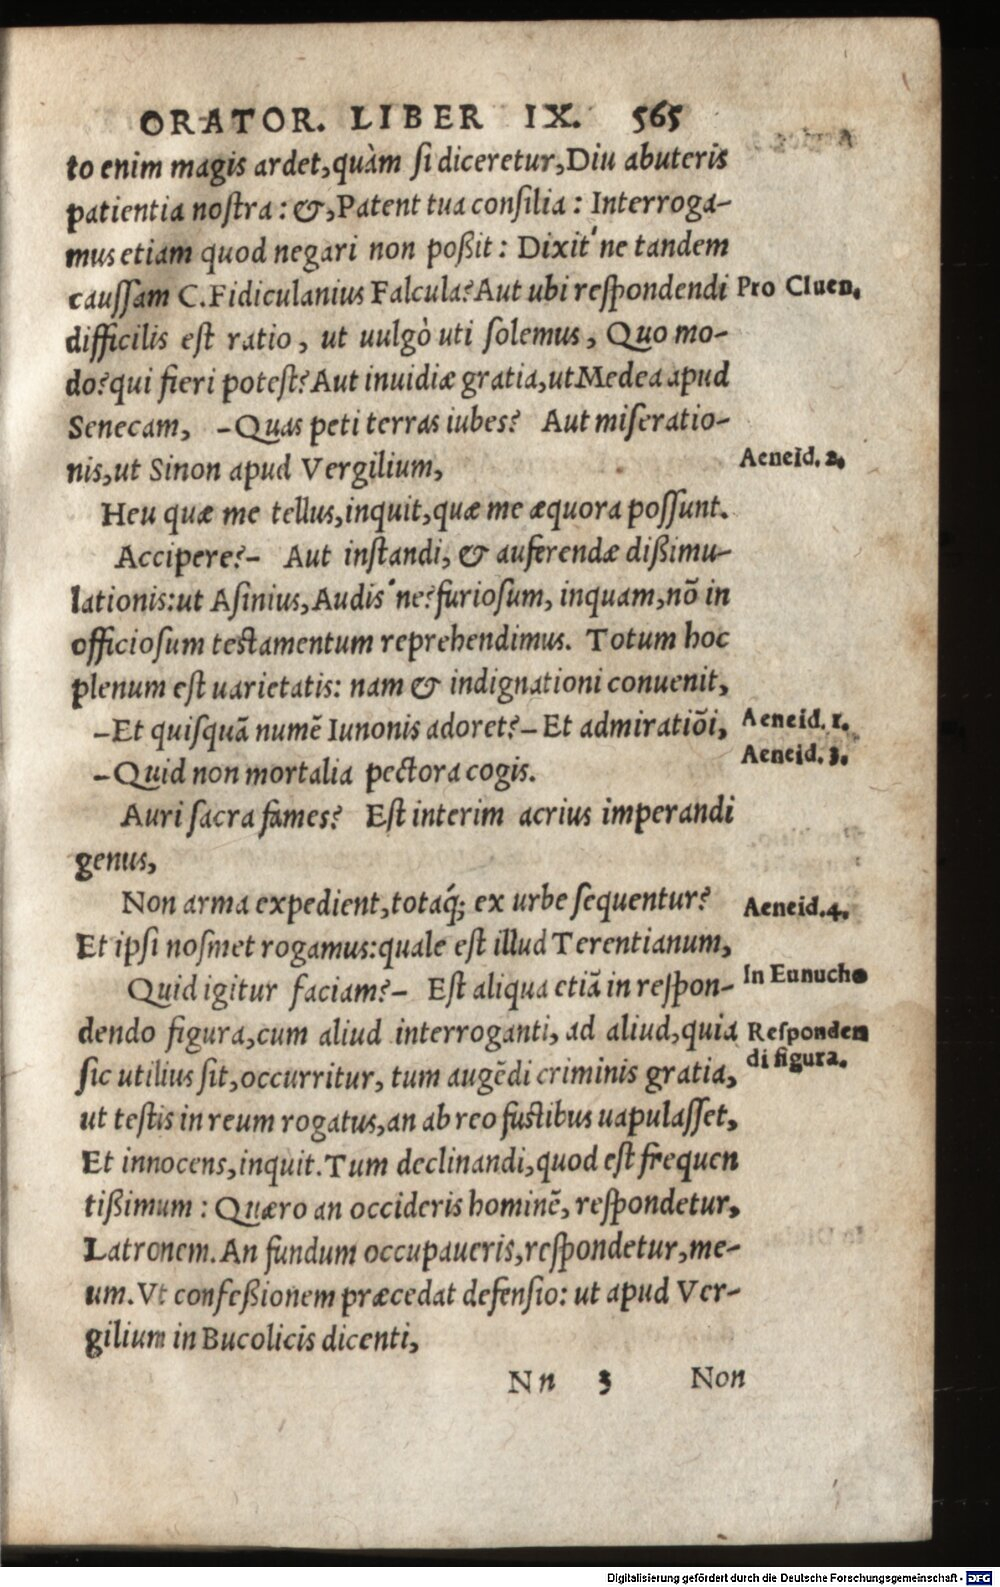 ORATOR. LIBER IX. 565
to enim magis ardet, quàm si diceretur, Diu abuteris
patientia nostra: &, Patent tua consilia: Interroga-
mus etiam quod negari non poßit: Dixit'ne tandem
caussam C. Fidiculanius Falcula? Aut ubi respondendi Pro Cluen.
difficilis est ratio, ut uulgò uti solemus, Quo mo-
do? qui fieri potest? Aut inuidiæ gratia, ut Medea apud
Senecam, -Quas peti terras iubes? Aut miseratio-
nis, ut Sinon apud Vergilium, Aeneid. 2.
Heu quæ me tellus, inquit, quæ me æquora possunt.
Accipere?- Aut instandi, & auferendæ dißimu-
lationis: ut Asinius, Audis'ne? furiosum, inquam, nõ in
officiosum testamentum reprehendimus. Totum hoc
plenum est uarietatis: nam & indignationi conuenit,
-Et quisquã numẽ Iunonis adoret?- Et admiratiõi, Aeneid. 1.
-Quid non mortalia pectora cogis. Aeneid. 3.
Auri sacra fames? Est interim acrius imperandi
genus,
Non arma expedient, totaq́; ex urbe sequentur? Aeneid. 4.
Et ipsi nosmet rogamus: quale est illud Terentianum,
Quid igitur faciam?- Est aliqua etiã in respon- In Eunucho
dendo figura, cum aliud interroganti, ad aliud, quia Responden
sic utilius sit, occurritur, tum augẽdi criminis gratia, di figura.
ut testis in reum rogatus, an ab reo fustibus uapulasset,
Et innocens, inquit. Tum declinandi, quod est frequen
tißimum: Quæro an occideris hominẽ, respondetur,
Latronem. An fundum occupaueris, respondetur, me-
um. Vt confeßionem præcedat defensio: ut apud Ver-
gilium in Bucolicis dicenti,
Nn 3 Non
Digitalisierung gefördert durch die Deutsche Forschungsgemeinschaft - DFG